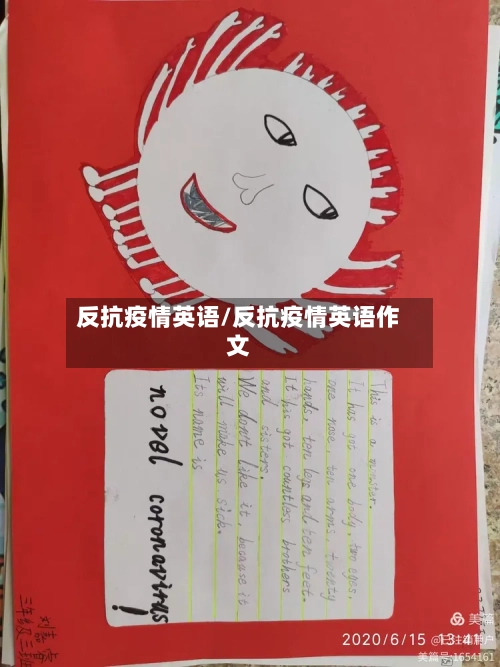 反抗疫情英语/反抗疫情英语作
文
This is a monster.
It has got one body, two eyes,
one nose, ten arms, twenty
hands, ten legs and ten feet.
It has got countless brothers
and sisters.
We don't like it, because it
will make us sick.
Its name is
novel coronavirus!
三年级三班
美篇
2020/6/15 13:41
美篇号:1654161